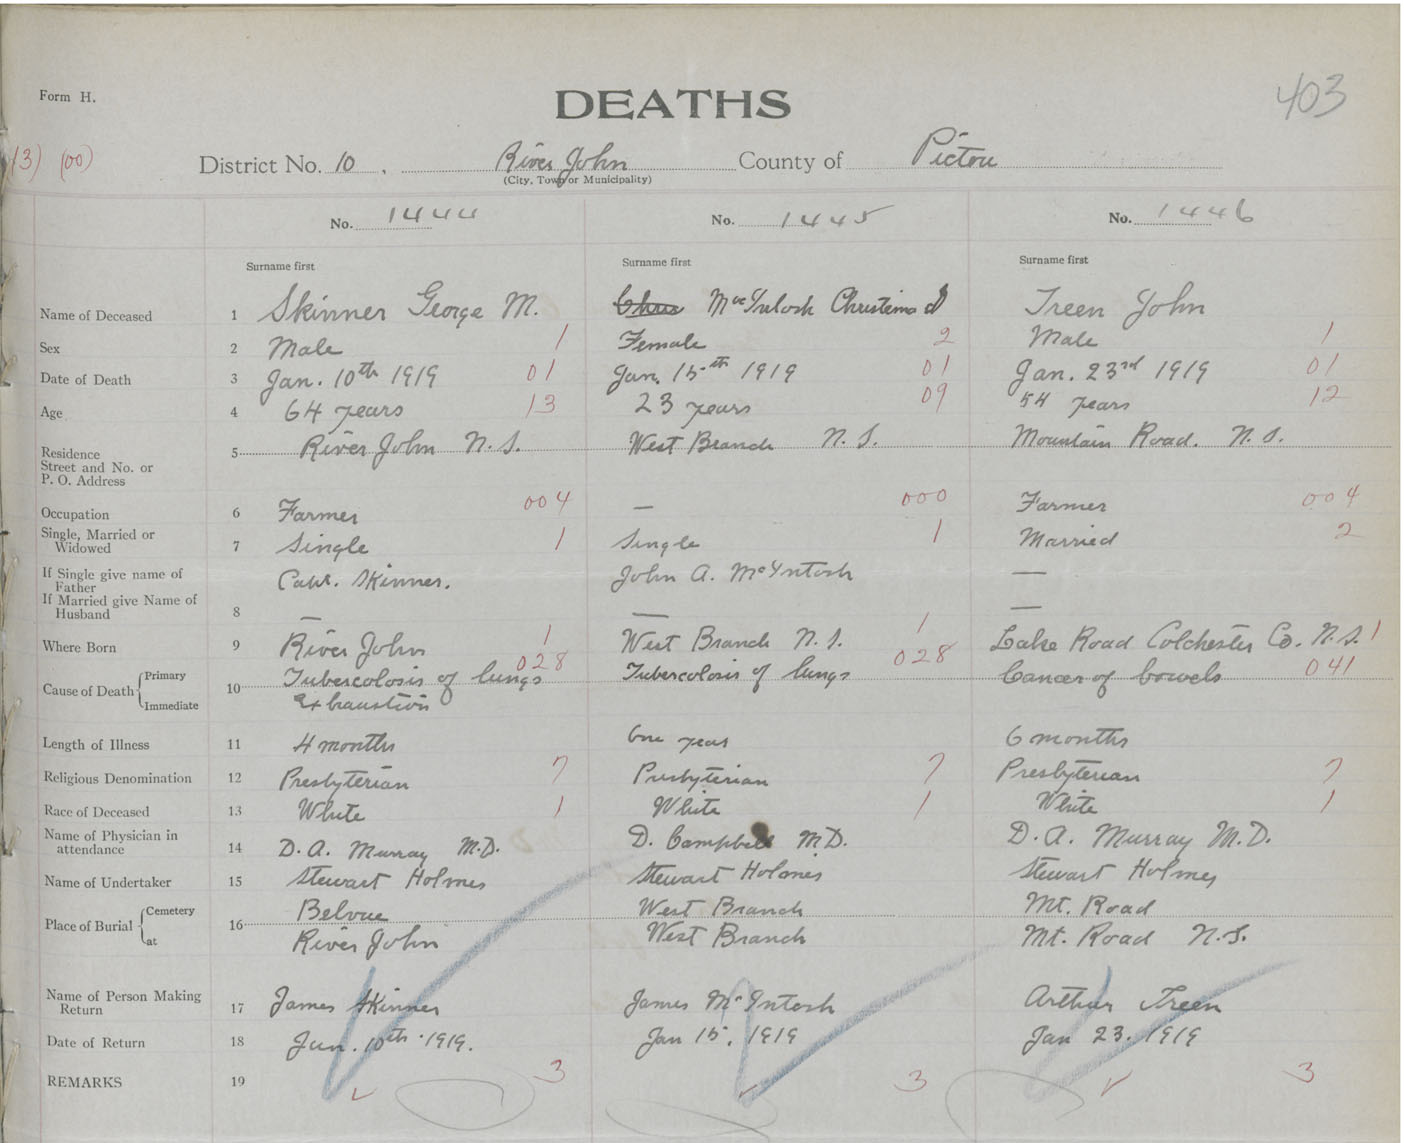 403
Form H.
DEATHS
13) (00)
District No. 10 , River John County of Pictou
(City, Town or Municipality)
No. 1444 No. 1445 No. 1446
Surname first Surname first Surname first
Name of Deceased 1 Skinner George M. Chris McIntosh Christina Treen John
Sex 2 Male 1 Female 2 Male 1
Date of Death 3 Jan. 10th 1919 01 Jan. 15th 1919 01 Jan. 23rd 1919 01
Age 4 64 years 13 23 years 09 54 years 12
Residence 5 River John N.S. West Branch N.S. Mountain Road. N.S.
Street and No. or
P. O. Address
Occupation 6 Farmer 004 — 000 Farmer 004
Single, Married or
Widowed 7 Single 1 Single 1 Married 2
If Single give name of
Father Capt. Skinner. John A. McIntosh —
If Married give Name of
Husband 8 — — —
Where Born 9 River John 1 West Branch N.S. 1 Lake Road Colchester Co. N.S. 1
Cause of Death Primary 10 Tubercolosis of lungs 028 Tubercolosis of lungs 028 Cancer of bowels 041
Immediate Exhaustion
Length of Illness 11 4 months One year 6 months
Religious Denomination 12 Presbyterian 7 Presbyterian 7 Presbyterian 7
Race of Deceased 13 White 1 White 1 White 1
Name of Physician in
attendance 14 D. A. Murray M.D. D. Campbell M.D. D. A. Murray M.D.
Name of Undertaker 15 Stewart Holmes Stewart Holmes Stewart Holmes
Place of Burial Cemetery 16 Belvue West Branch Mt. Road
at River John West Branch Mt. Road N.S.
Name of Person Making
Return 17 James Skinner James McIntosh Arthur Treen
Date of Return 18 Jan. 10th. 1919. Jan 15. 1919 Jan 23. 1919
REMARKS 19 3 3 3